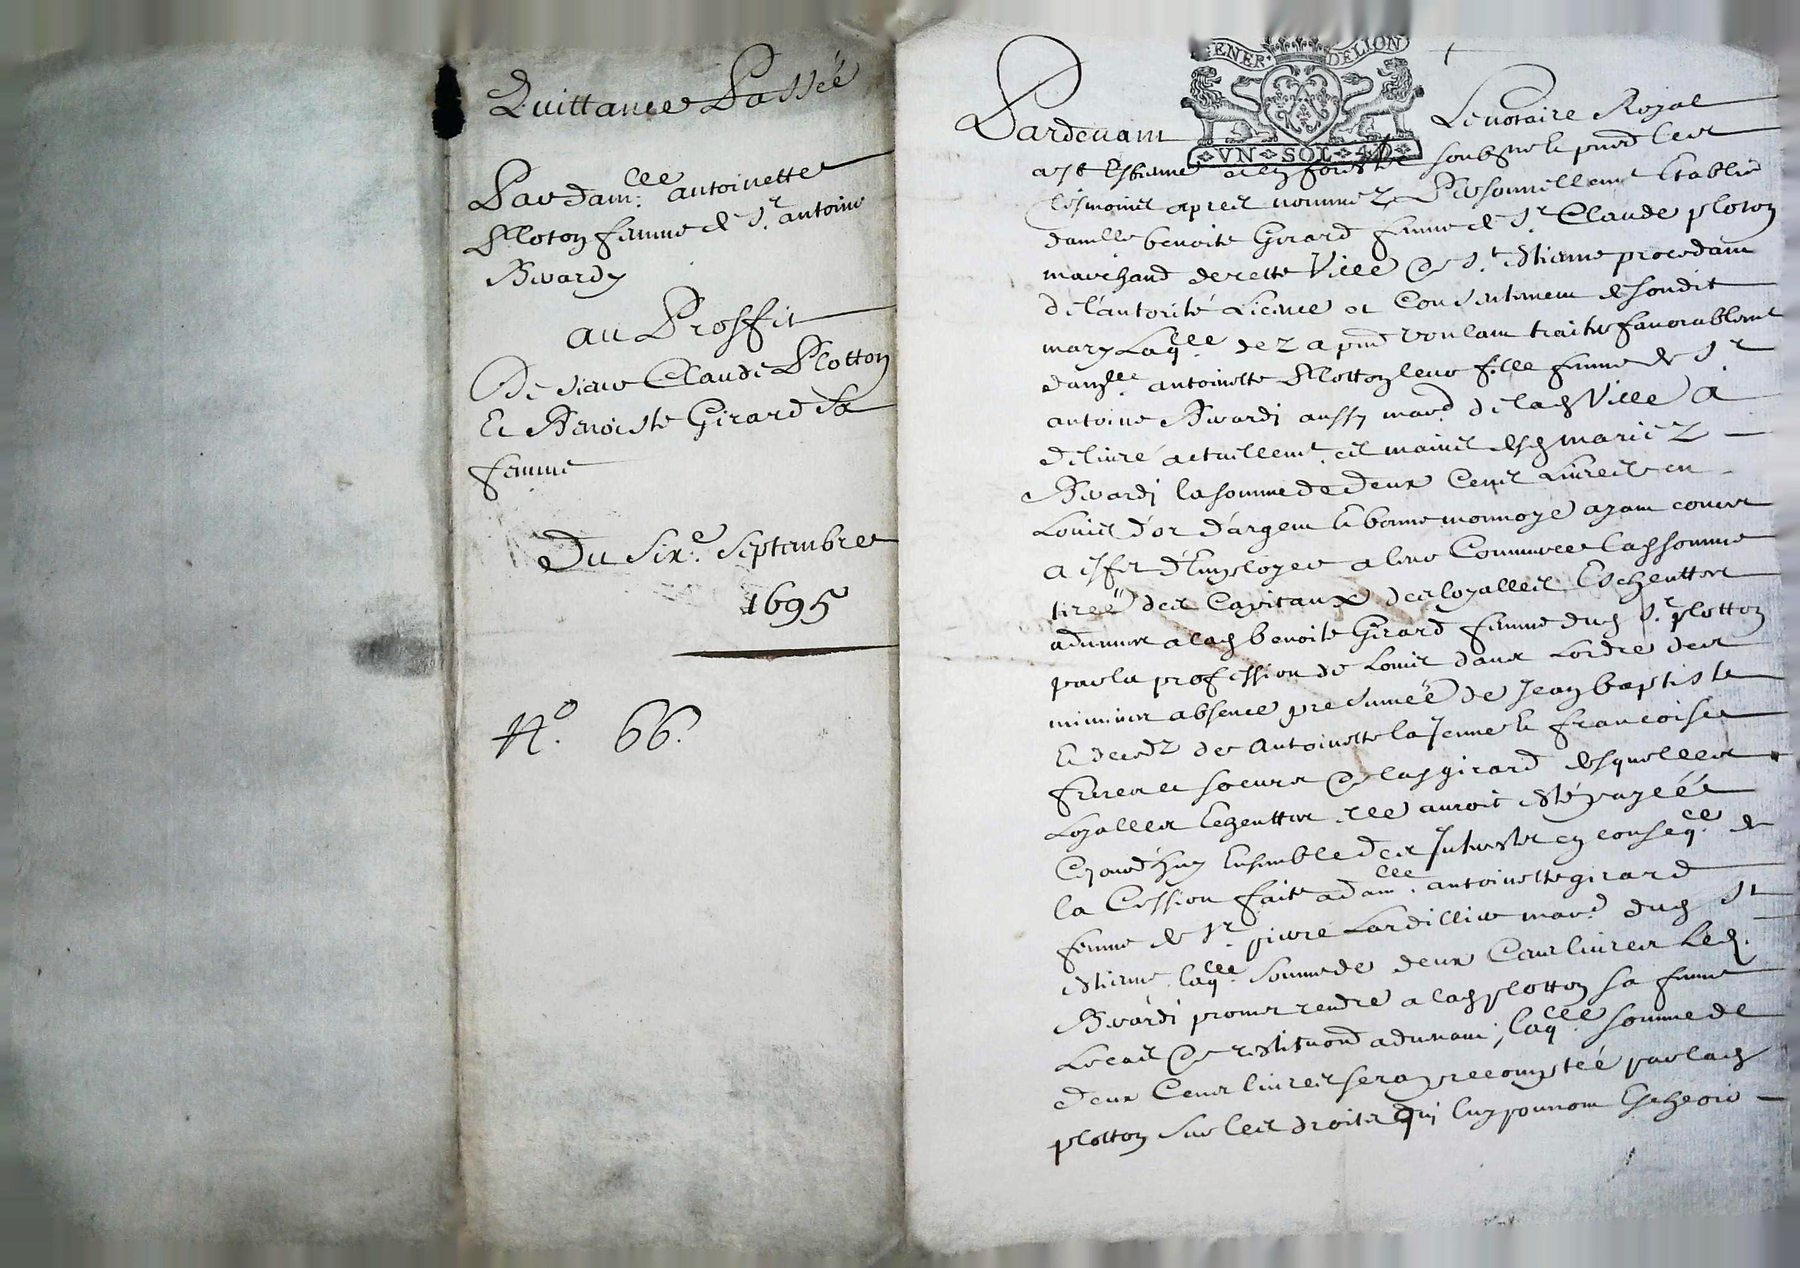 Quittance Passée
Par dam.lle antoinette
Ploton femme de Sr. antoine
Bivardy
au Proffit
De sieur Claude Plotton
Et Benoiste Girard sa
femme
Du Six.e Septembre
1695
N.o 66.
GENER DE LION
VN SOL 4 D
Pardevant Le notaire Royal
a St Estienne en forest soubsne le pnt les
tesmoins apres nommez Personnellemt Establie
damlle benoite Girard femme de Sr. Claude ploton
marchand de cette Ville de St. Estienne procedant
de l'autorité Licence et Consentement de sondit
mary Laq.lle de voulant traiter favorablemt
dam.lle antoinette Plotton leur fille femme de Sr
antoine Bivardi aussy mard. de lad Ville A
delivré actuellemt. es mains desd mariez
Bivardi la somme de deux Cents Livres en
Louis d'or d'argent et bonne monnoye ayant cours
a Effet d'Employer a leur Commerce lad somme
tireé des Capitaux des loyalles Escheuttes
advenues a lad benoite Girard femme dud Sr. plotton
par la profession de Louis dans Lordre des
minimes absence presumeé de Jean baptiste
Et deced de Antoinette la Jeune et francoise
freres et soeurs de lad girard desquelles
Loyalles Echeuttes elle auroit esté payeé
Cejourd'huy Ensemble des Interests en conseq.ce de
la Cession faite a dam.lle antoinette girard
femme de Sr. pierre Lardillier mard. dud St
estienne laq.lle somme de deux Cents livres led.
Bivardi promet rendre a lad plotton sa femme
Le cas de restituon advenant, laq.lle somme de
deux Cents livres sera precomptée par lad
plotton sur les droits qui luy pourront Escheoir